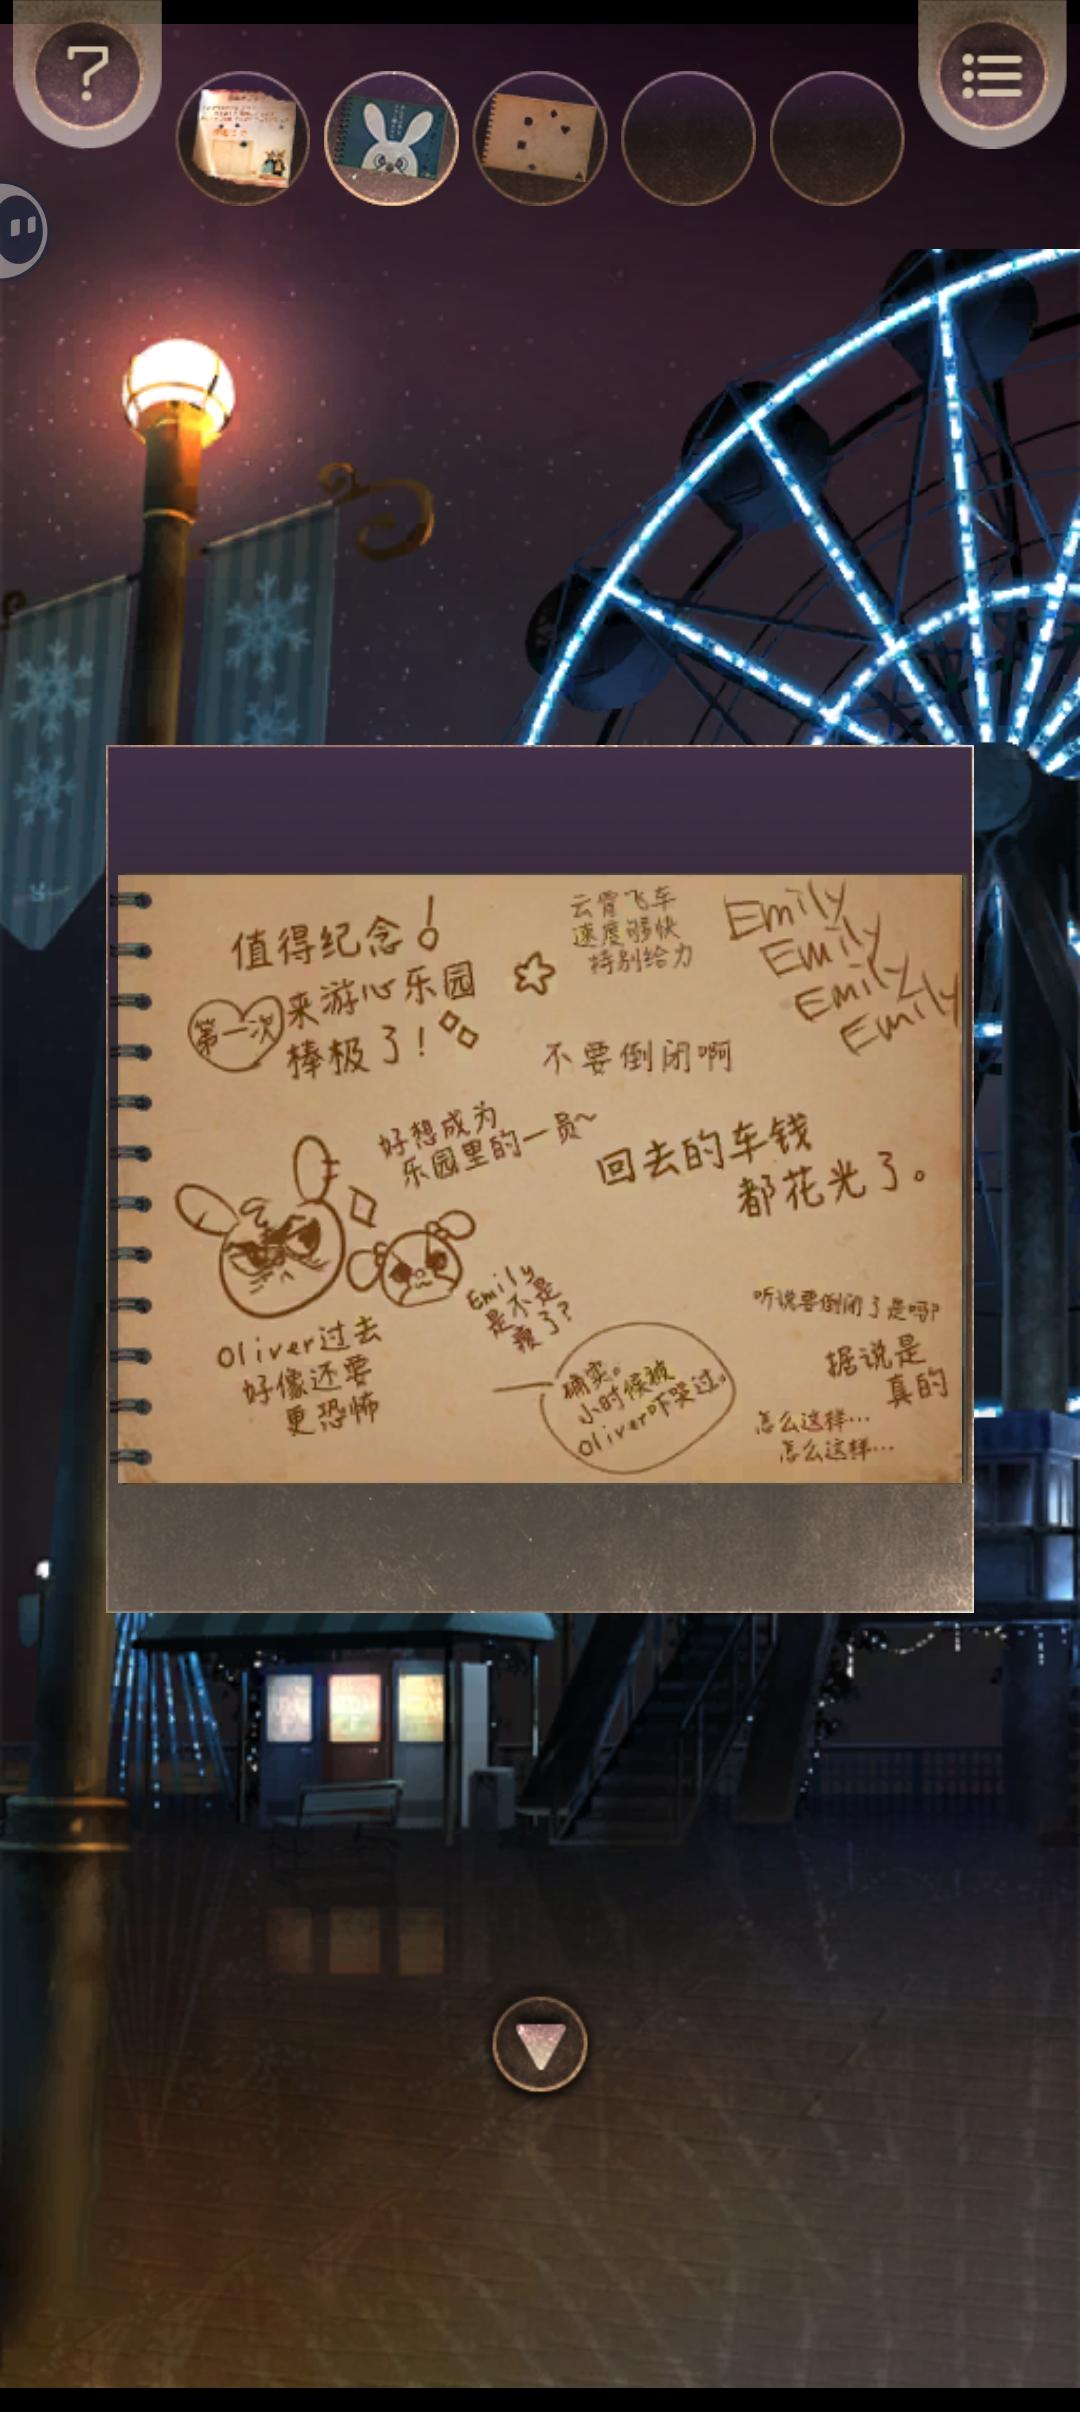 值得纪念！
第一次
来游心乐园
棒极了！
云霄飞车
速度够快
特别给力
Emily
Emily
Emily
Emily
不要倒闭啊
好想成为
乐园里的一员~
回去的车钱
都花光了。
Oliver过去
好像还要
更恐怖
Emily
是不是
瘦了？
确实。
小时候被
Oliver吓哭过。
听说要倒闭了是吗？
据说是
真的
怎么这样…
怎么这样…